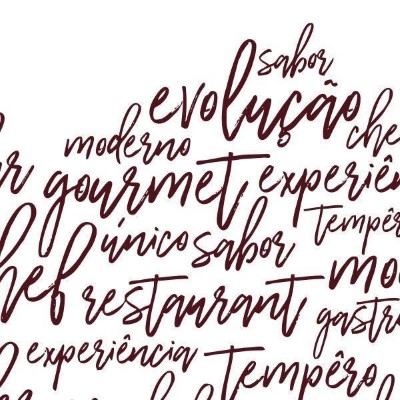 sabor
evolução
che
moderno
gourmet experiên
tempêr
único sabor
hef restaurant mod
gastro
experiência tempêro